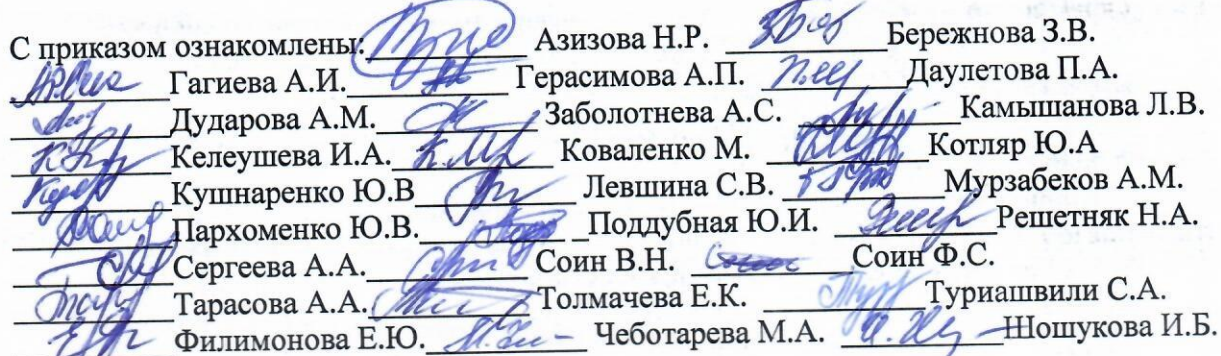 С приказом ознакомлены:__________ Азизова Н.Р. __________Бережнова З.В.
__________Гагиева А.И.__________ Герасимова А.П. __________Даулетова П.А.
__________Дударова А.М.__________Заболотнева А.С. __________Камышанова Л.В.
__________Келеушева И.А. __________ Коваленко М. __________Котляр Ю.А
__________Кушнаренко Ю.В__________ Левшина С.В. __________Мурзабеков А.М.
__________Пархоменко Ю.В.__________ _Поддубная Ю.И. __________Решетняк Н.А.
__________Сергеева А.А.__________ Соин В.Н. __________Соин Ф.С.
__________Тарасова А.А.__________Толмачева Е.К. __________Туриашвили С.А.
__________Филимонова Е.Ю.__________ Чеботарева М.А. __________Шошукова И.Б.